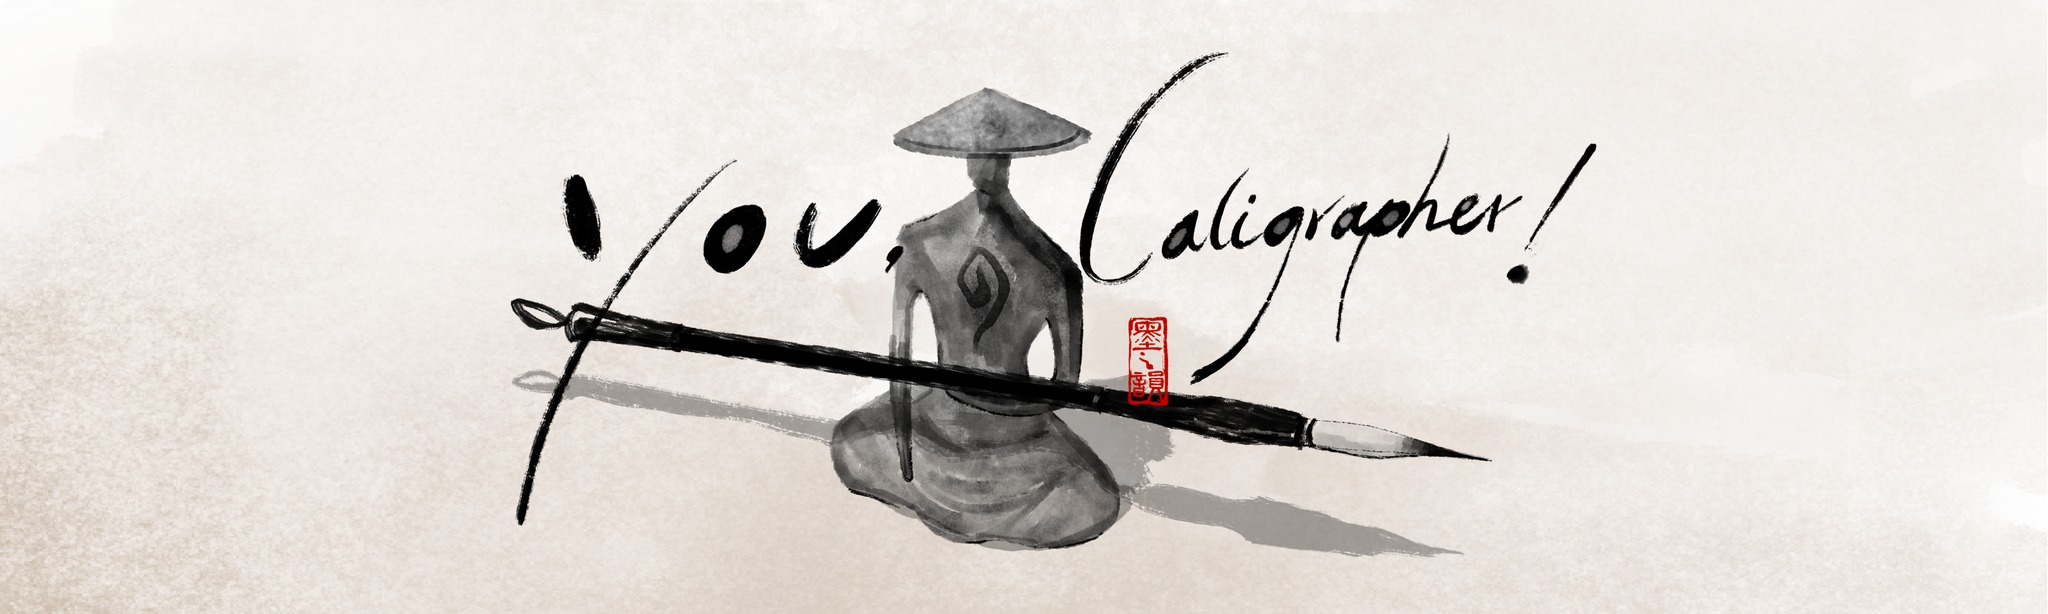 You, Caligrapher!
墨之韻